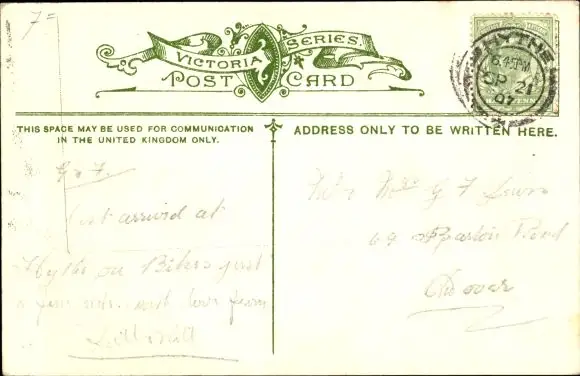 7=
VICTORIA SERIES.
POST CARD
HYTHE
6.45PM
SP 21
07
THIS SPACE MAY BE USED FOR COMMUNICATION
IN THE UNITED KINGDOM ONLY.
ADDRESS ONLY TO BE WRITTEN HERE.
G & F.
Just arrived at
Hythe on Bikes just
a fine ride. with love from
Mr & Mrs G F Lewis
Road
Dover